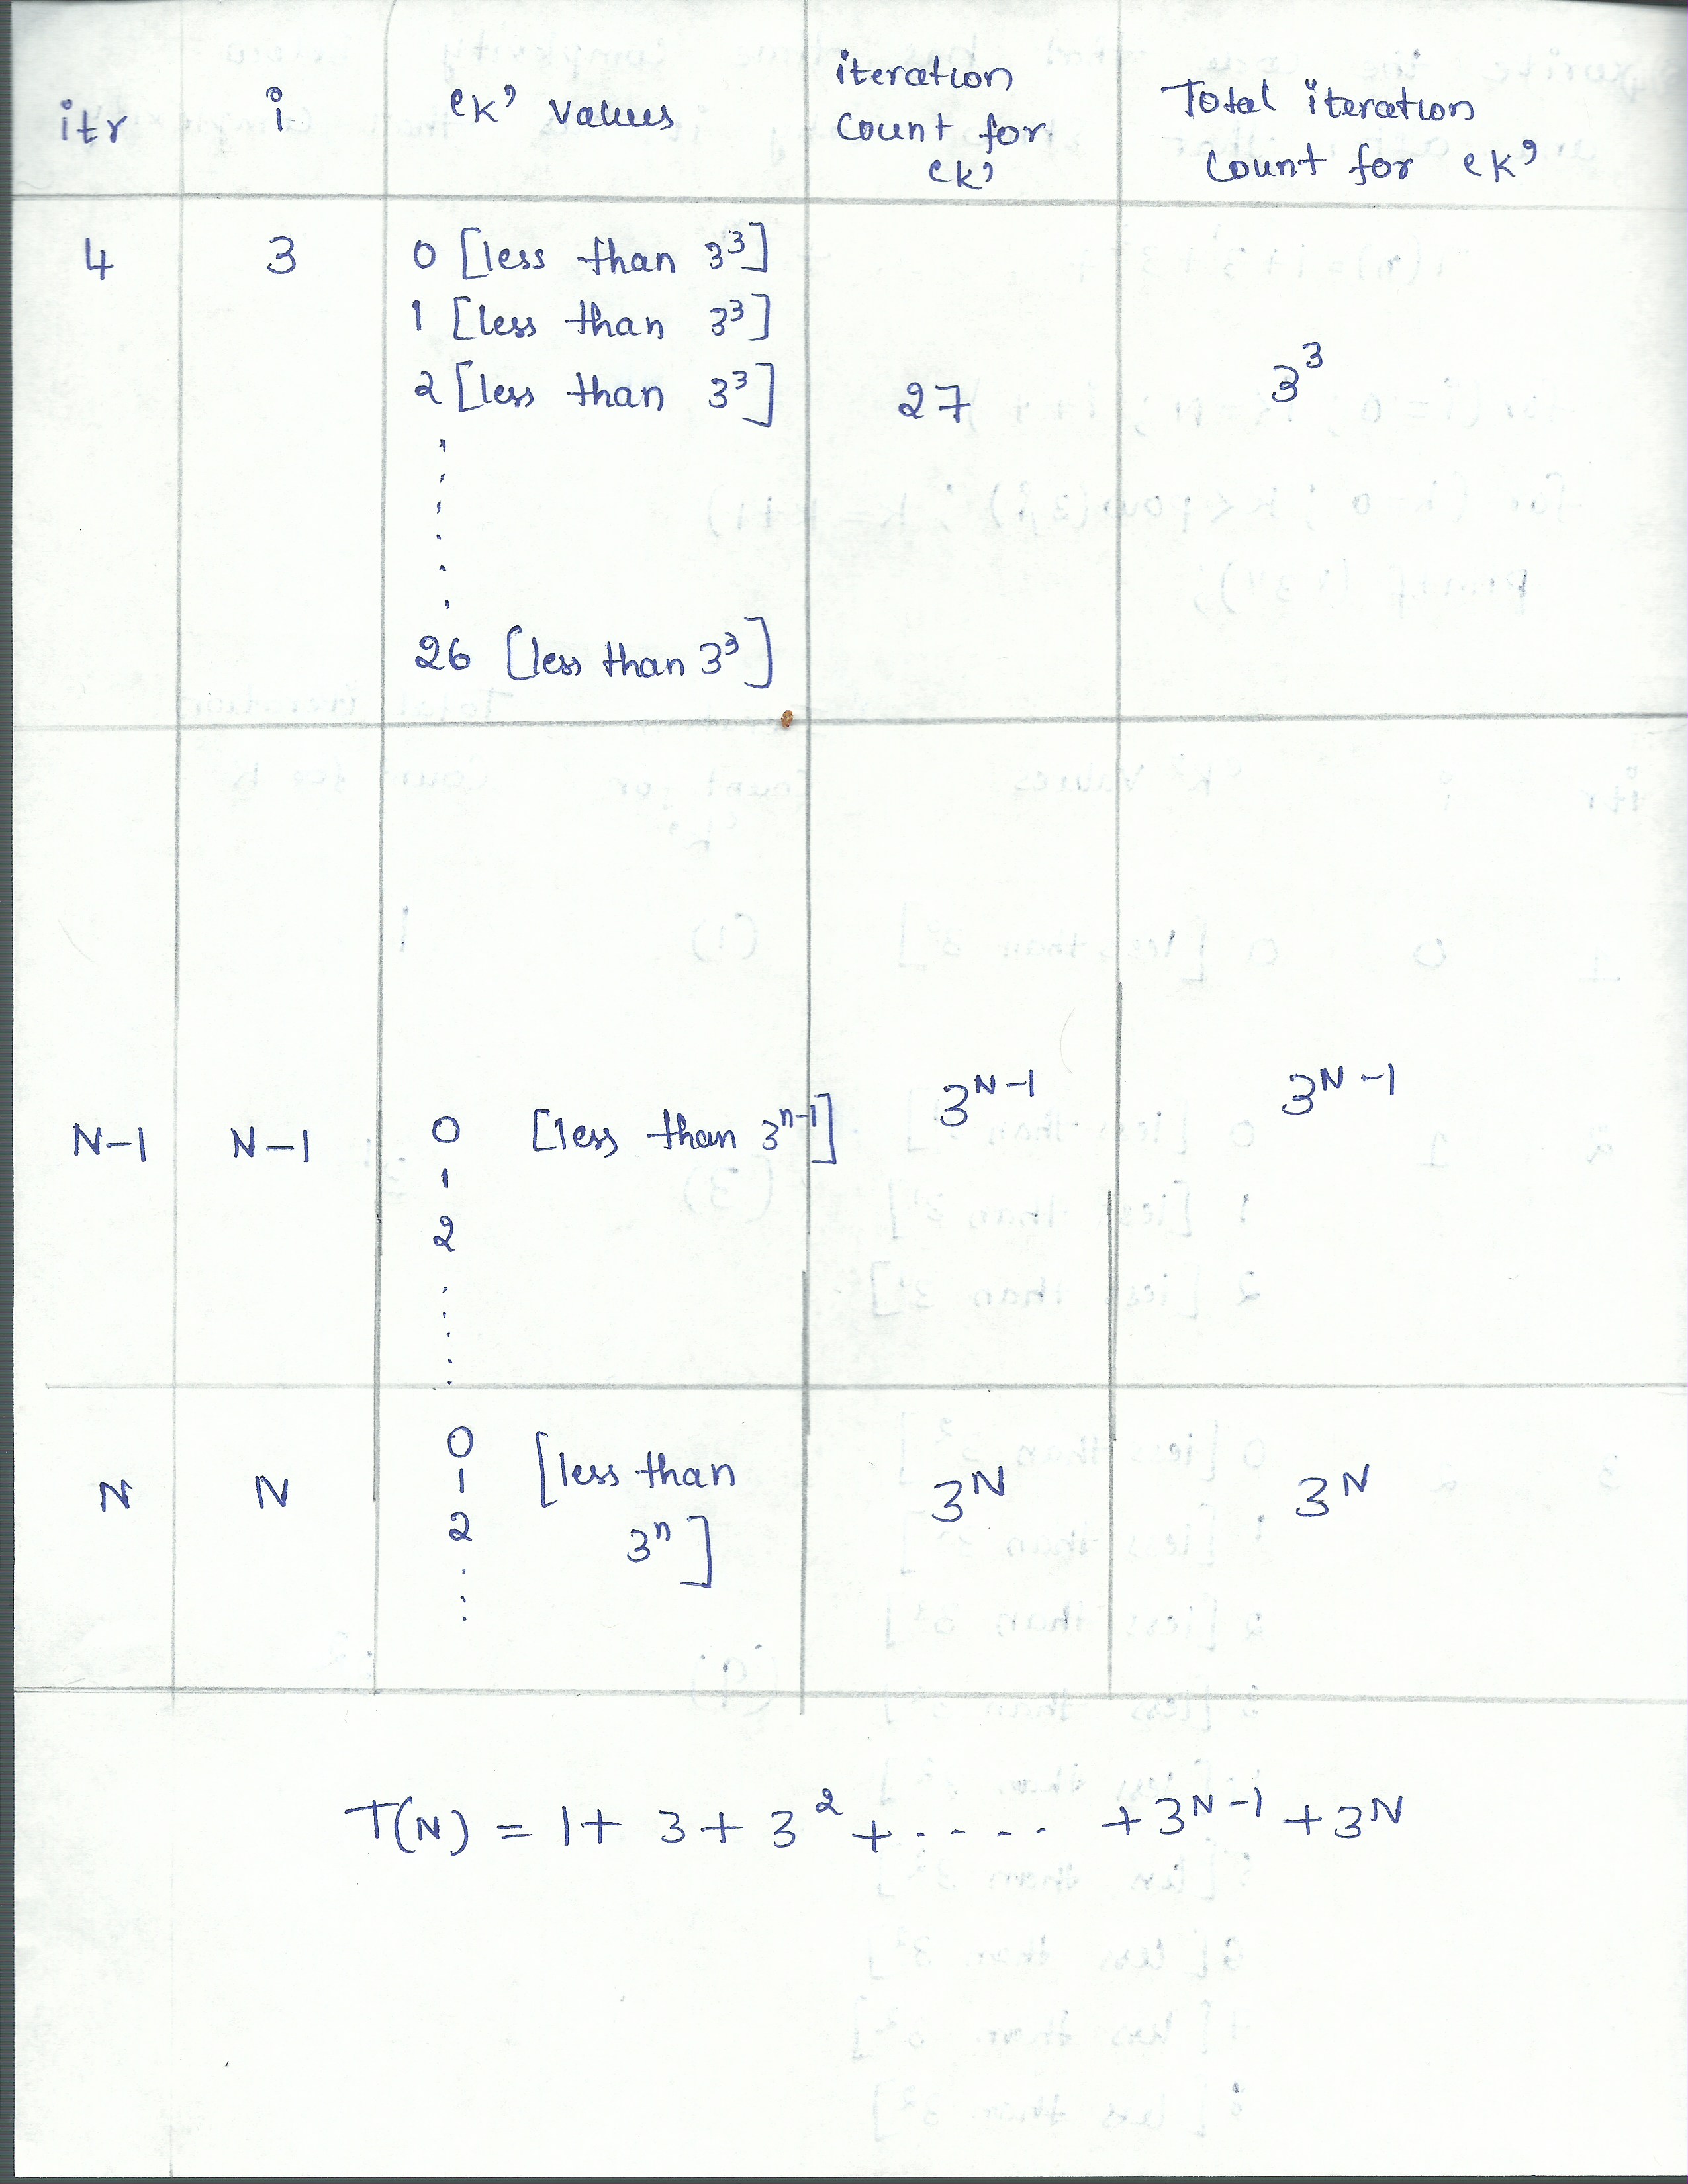 itr i 'k' values iteration count for 'k' Total iteration count for 'k'
4 3 0 [less than 3³]
1 [less than 3³]
2 [less than 3³] 27 3³
26 [less than 3³]
N-1 N-1 0 [less than 3ⁿ⁻¹] 3ᴺ⁻¹ 3ᴺ⁻¹
1
2
0
N N 1 [less than 3ᴺ 3ᴺ
2 3ⁿ]
T(N) = 1 + 3 + 3² + ..... + 3ᴺ⁻¹ + 3ᴺ